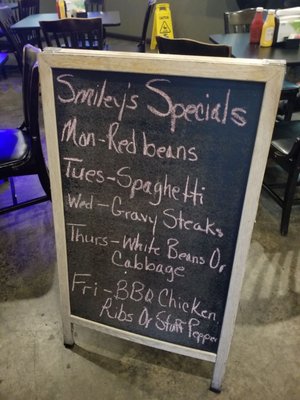 Smiley's Specials
Mon-Red beans
Tues-Spaghetti
Wed-Gravy Steaks
Thurs-White Beans Or
Cabbage
Fri-BBQ Chicken
Ribs Or Stuff Pepper